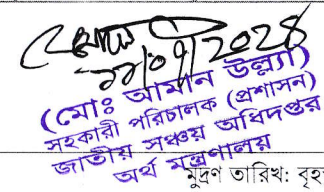 ২২/০৭/2024
(মোঃ আমান উল্ল্যা)
সহকারী পরিচালক (প্রশাসন)
জাতীয় সঞ্চয় অধিদপ্তর
অর্থ মন্ত্রণালয়
মুদ্রণ তারিখ: বৃহ